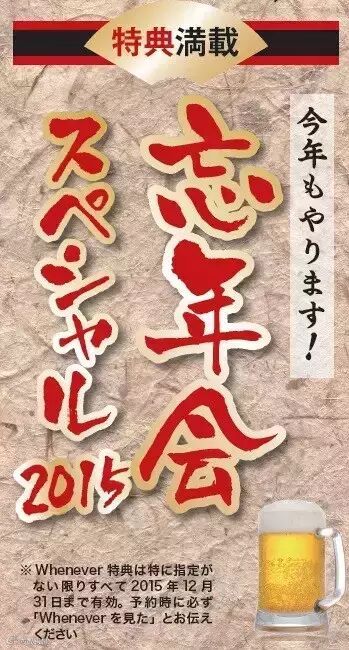 特典満載
今年もやります！
忘年会
スペシャル2015
※Whenever 特典は特に指定が
ない限りすべて2015年12月
31日まで有効。予約時に必ず
「Wheneverを見た」とお伝え
ください